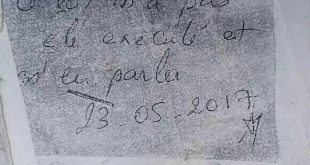 n'a pas
été executé et
m'en parler
23-05-2017